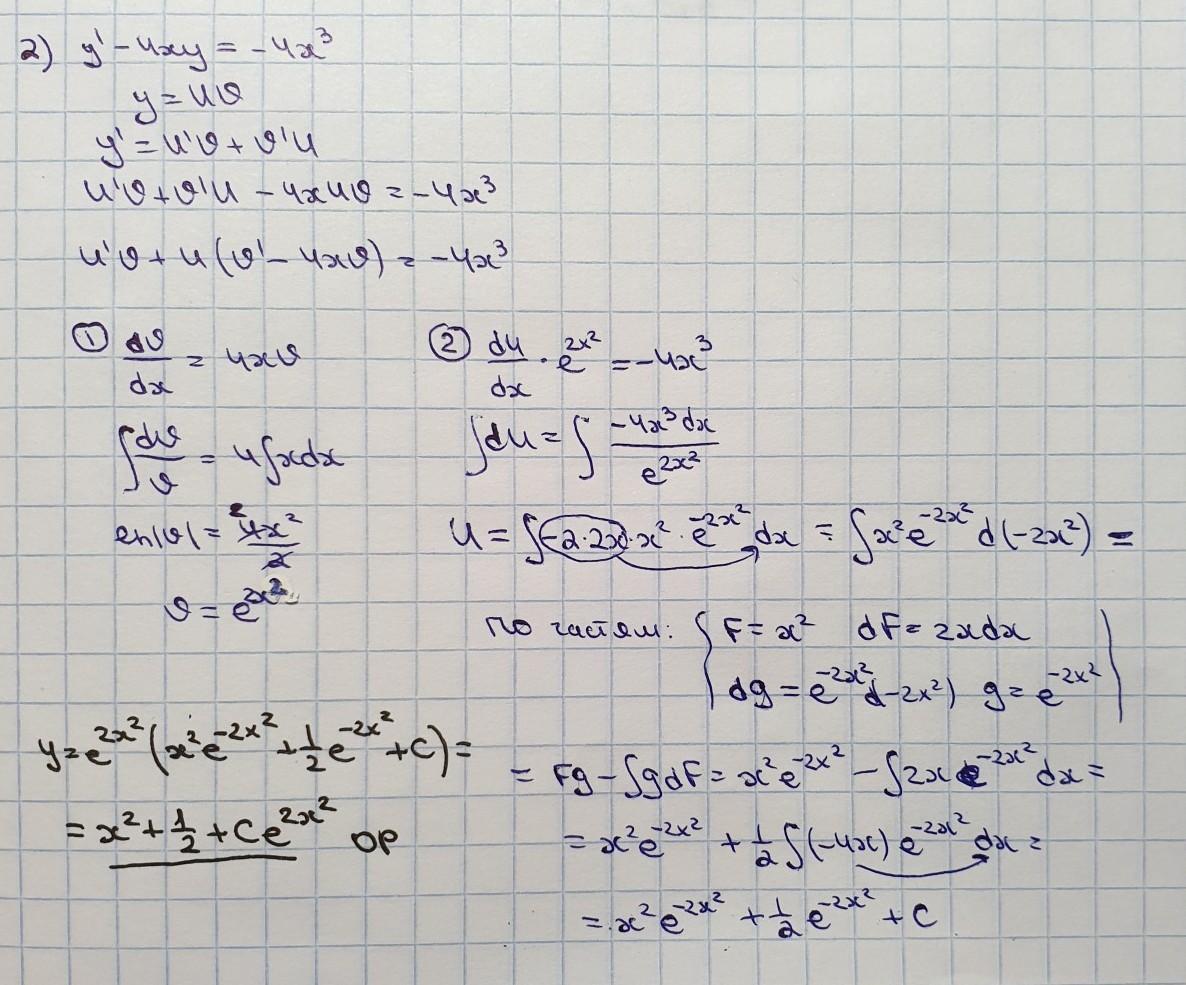 2) y' - 4xy = -4x³
y = uv
y' = u'v + v'u
u'v + v'u - 4xuv = -4x³
u'v + u(v' - 4xv) = -4x³
① dv/dx = 4xv
∫dv/v = 4∫xdx
ln|v| = ²4x²/2
v = e^2x²
② du/dx · e^2x² = -4x³
∫du = ∫ -4x³dx/e^2x²
u = ∫-2·2x·x²·e^-2x² dx = ∫x²e^-2x² d(-2x²) =
по частям: { F = x² dF = 2xdx
dg = e^-2x² d-2x²) g = e^-2x² |
= Fg - ∫gdF = x²e^-2x² - ∫2x e^-2x² dx =
= x²e^-2x² + 1/2 ∫(-4x) e^-2x² dx =
= x²e^-2x² + 1/2 e^-2x² + C
y = e^2x² (x²e^-2x² + 1/2 e^-2x² + C) =
= x² + 1/2 + Ce^2x² ОР